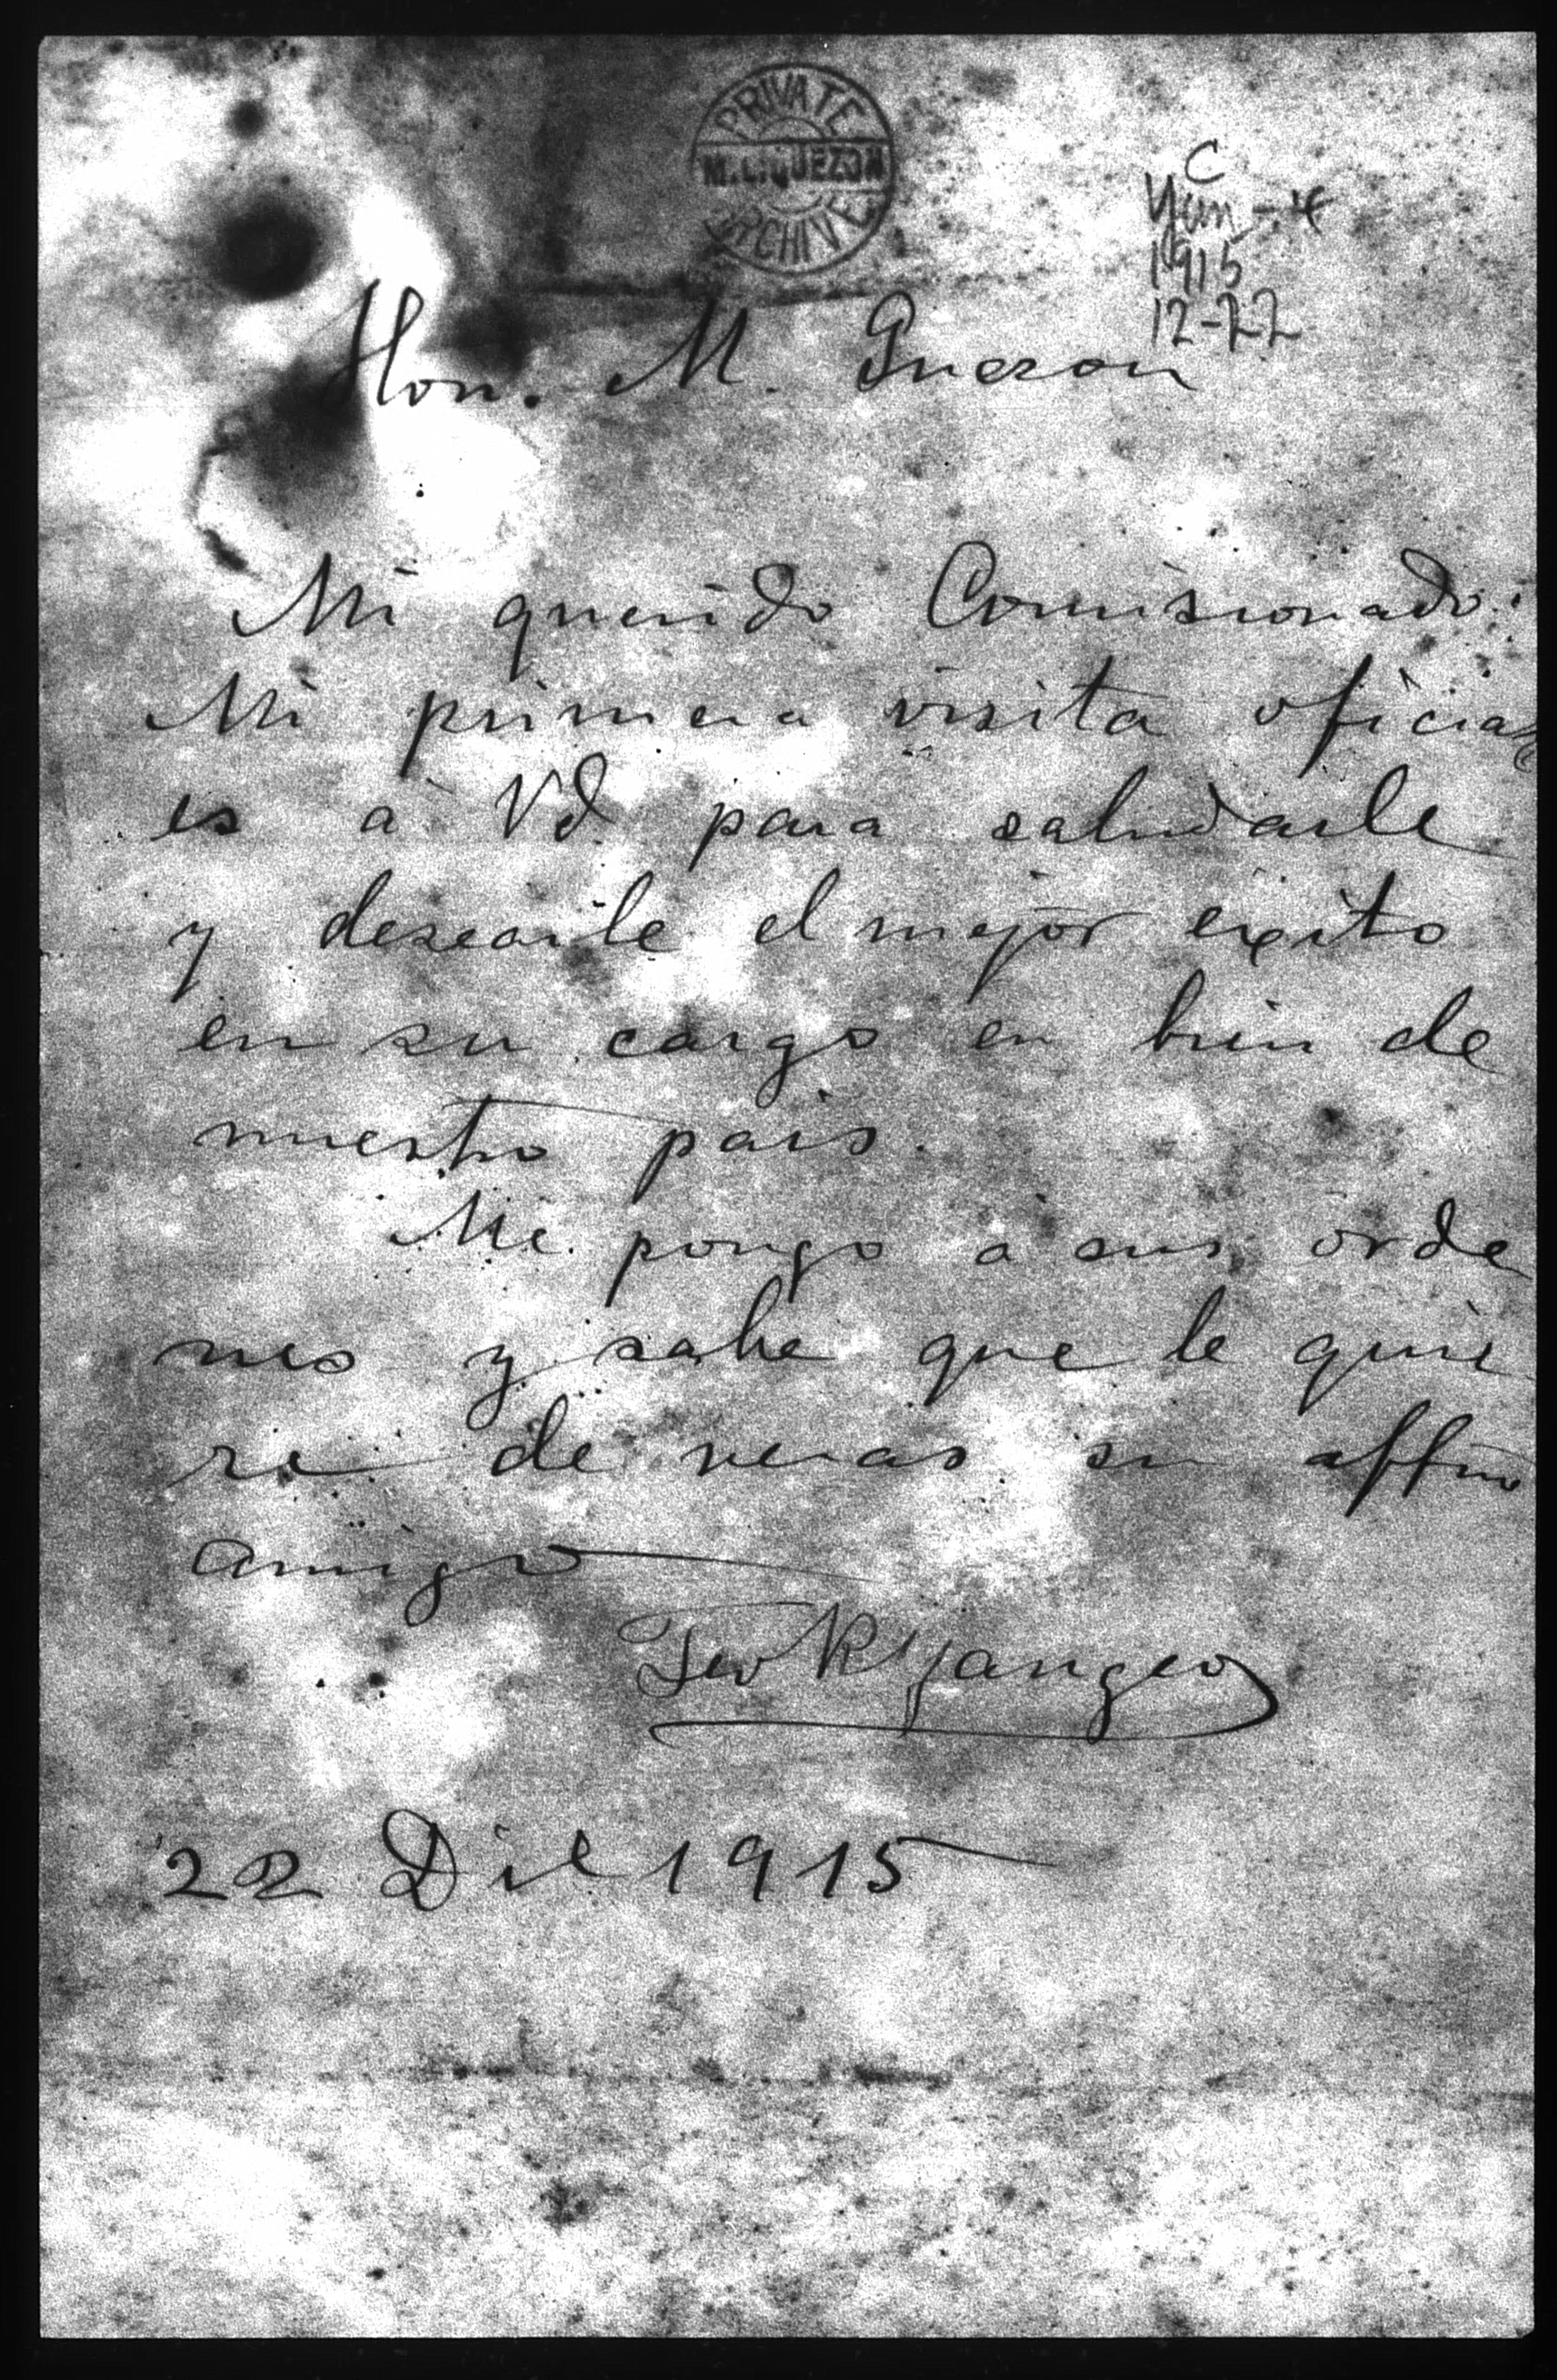 PRIVATE
M.L.QUEZON
ARCHIVE
C
Yan-4
1915
12-22
Hon. M. Quezon
Mi querido Comisionado:
Mi primera visita oficial
es á Vd para saludarle
y desearle el mejor exito
en su cargo en bien de
nuestro pais.
Me pongo á sus órde
nes y sabe que le quie
re de veras su affmo
amigo
Teo R Yangco
22 Dic 1915